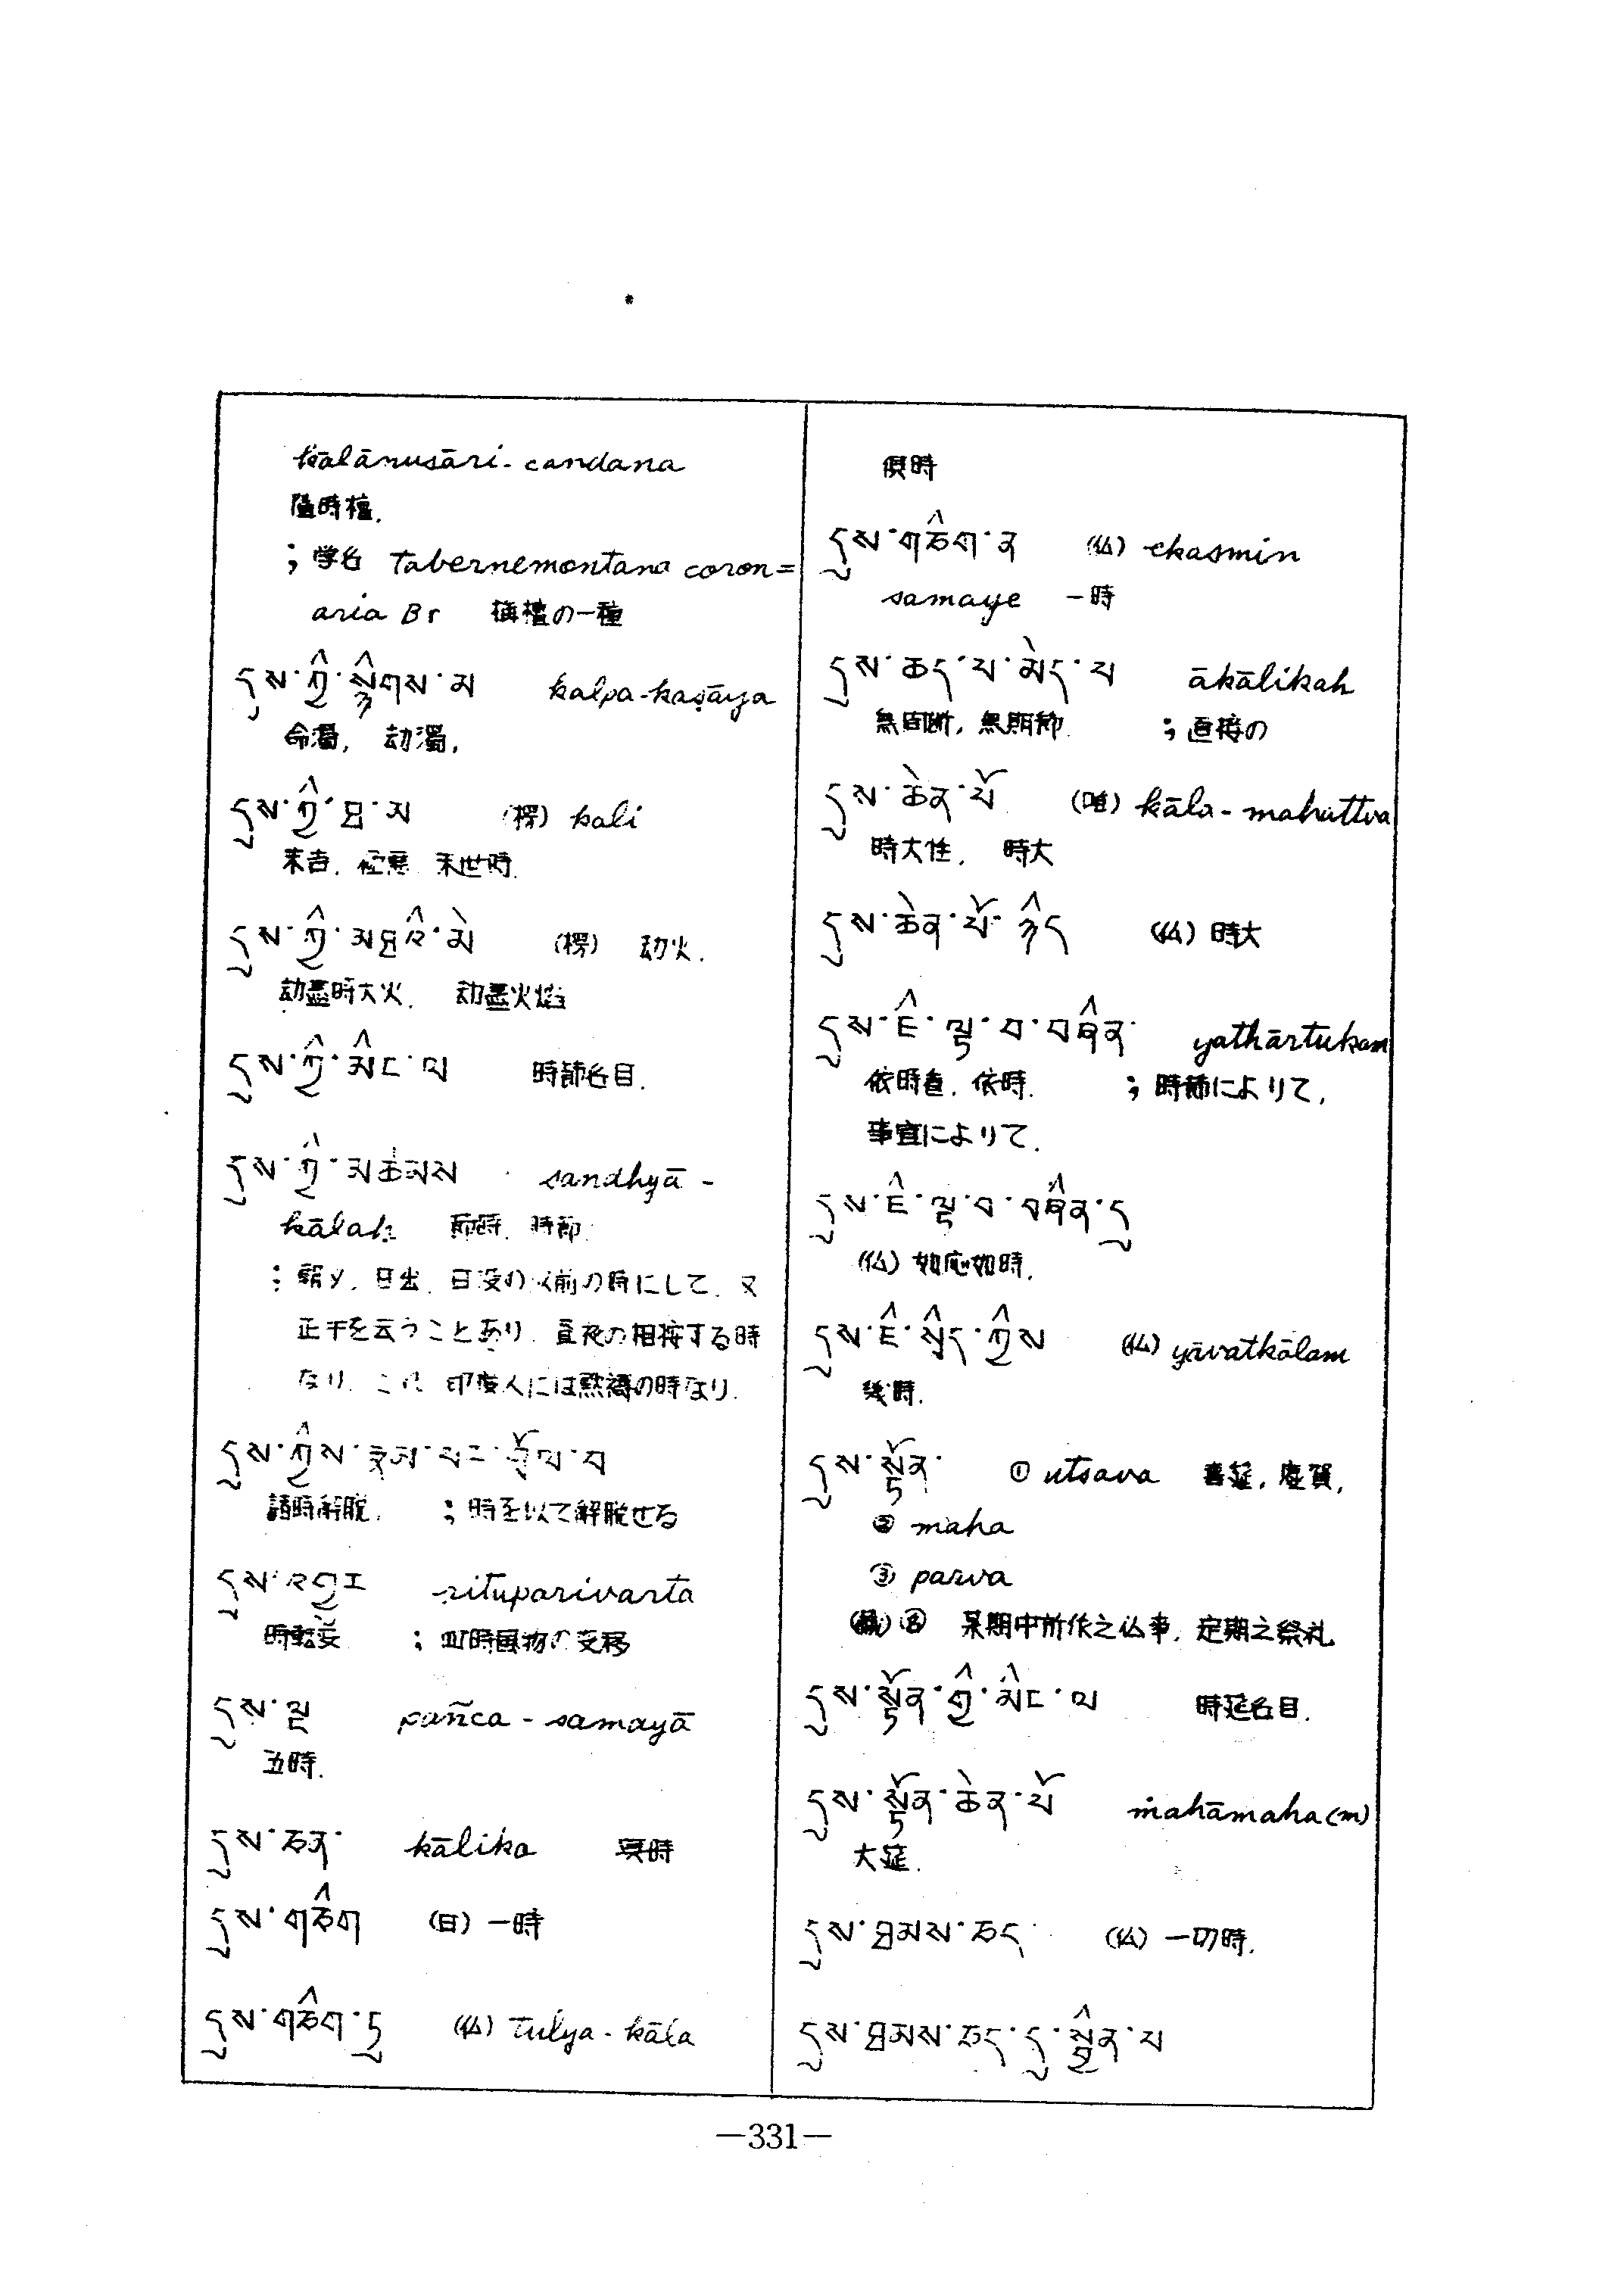 kālānusāri-candana
隨時檀.
; 学名 Tabernemontana coron=
aria Br 栴檀の一種
དུས་ཀྱི་སྙིགས་མ kalpa-kaṣāya
命濁, 劫濁,
དུས་ཀྱི་ཐ་མ (楞) kali
末吉. 極悪 末世時.
དུས་ཀྱི་མཐའི་མེ (楞) 劫火.
劫盡時大火. 劫盡火焰
དུས་ཀྱི་མིང་ལ 時節名目.
དུས་ཀྱི་མཚམས sandhyā-
kālaḥ 節時. 時節
日出. 日没の以前の時にして. 又
正午を云うことあり. 昼夜の相接する時
なり. これ 印度人には黙祷の時なり.
དུས་ཀྱིས་རྣམ་པར་གྲོལ་བ
諸時解脱. ; 時を以て解脱せる
དུས་འགྱུར rituparivarta
時転変 ; 四時風物の変移
དུས་ལྔ pañca-samayā
五時.
དུས་ཅན་ kālika 異時
དུས་གཅིག (目) 一時
དུས་གཅིག་ཏུ (仏) tulya-kāla
倶時
དུས་གཅིག་ན (仏) ekasmin
samaye 一時
དུས་ཆད་པ་མེད་པ ākālikaḥ
無間断, 無期節. ; 直接の
དུས་ཆེན་པོ (唯) kāla-mahattva
時大性. 時大
དུས་ཆེན་པོ་ཉིད (仏) 時大
དུས་ཇི་ལྟ་བ་བཞིན་ yathārtukam
依時直. 依時. ; 時節によりて,
事宜によりて.
དུས་ཇི་ལྟ་བ་བཞིན་དུ
(仏) 如応如時.
དུས་ཇི་སྲིད་ཀྱིས (仏) yāvatkālam
幾時.
དུས་སྟོན་ ① utsava 喜筵, 慶賀,
② maha
③ parva
(蔵) 名 某期中所作之仏事, 定期之祭礼
དུས་སྟོན་གྱི་མིང་ལ 時筵名目.
དུས་སྟོན་ཆེན་པོ mahāmaha(m)
大筵.
དུས་ཐམས་ཅད་ (仏) 一切時.
དུས་ཐམས་ཅད་དུ་སྦྱིན་པ
—331—